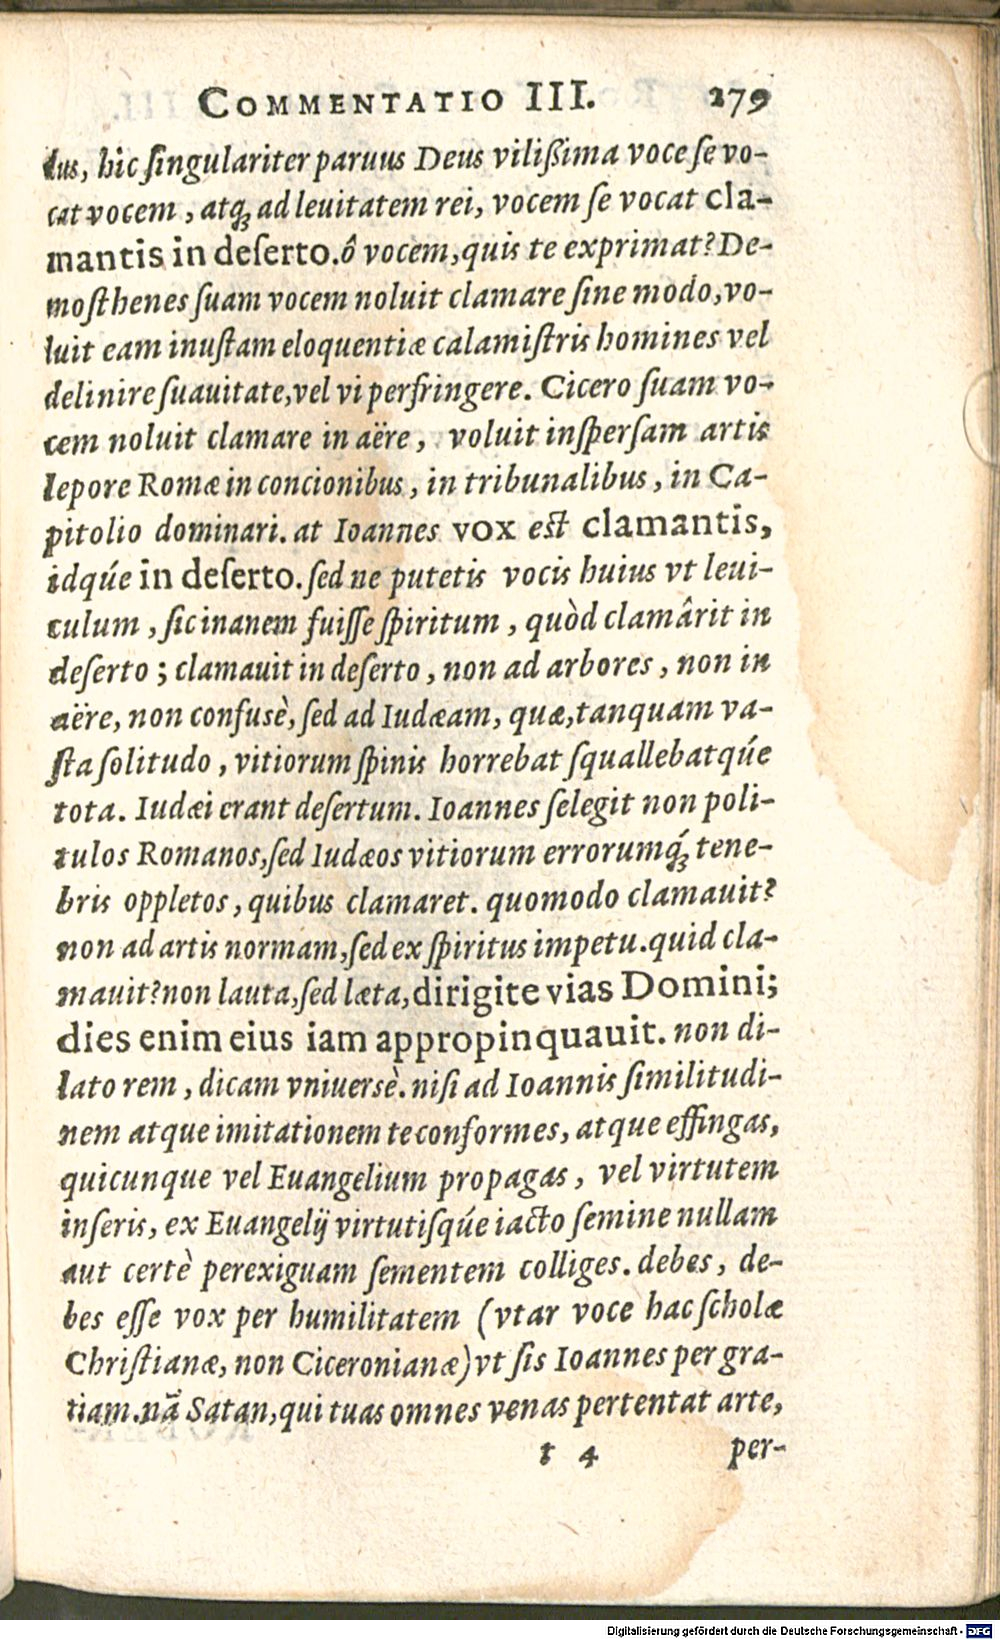 COMMENTATIO III. 279
dus, hic ſingulariter paruus Deus vilißima voce ſe vo-
cat vocem, atq́; ad leuitatem rei, vocem ſe vocat cla-
mantis in deſerto. ô vocem, quis te exprimat? De-
moſthenes ſuam vocem noluit clamare ſine modo, vo-
luit eam inuſtam eloquentiæ calamiſtris homines vel
delinire ſuauitate, vel vi perfringere. Cicero ſuam vo-
cem noluit clamare in aëre, voluit inſperſam artis
lepore Romæ in concionibus, in tribunalibus, in Ca-
pitolio dominari. at Ioannes vox eſt clamantis,
idqúe in deſerto. ſed ne putetis vocis huius vt leui-
culum, ſic inanem fuiſſe ſpiritum, quòd clamârit in
deſerto; clamauit in deſerto, non ad arbores, non in
aëre, non confusè, ſed ad Iudæam, quæ, tanquam va-
ſta ſolitudo, vitiorum ſpinis horrebat ſquallebatqúe
tota. Iudæi erant deſertum. Ioannes ſelegit non poli-
tulos Romanos, ſed Iudæos vitiorum errorumq́; tene-
bris oppletos, quibus clamaret. quomodo clamauit?
non ad artis normam, ſed ex ſpiritus impetu. quid cla-
mauit? non lauta, ſed læta, dirigite vias Domini;
dies enim eius iam appropinquauit. non di-
lato rem, dicam vniuersè. niſi ad Ioannis ſimilitudi-
nem atque imitationem te conformes, atque effingas,
quicunque vel Euangelium propagas, vel virtutem
inſeris, ex Euangelij virtutiſqúe iacto ſemine nullam
aut certè perexiguam ſementem colliges. debes, de-
bes eſſe vox per humilitatem (vtar voce hac ſcholæ
Chriſtianæ, non Ciceronianæ) vt ſis Ioannes per gra-
tiam. nã Satan, qui tuas omnes venas pertentat arte,
t 4 per-
Digitalisierung gefördert durch die Deutsche Forschungsgemeinschaft - DFG